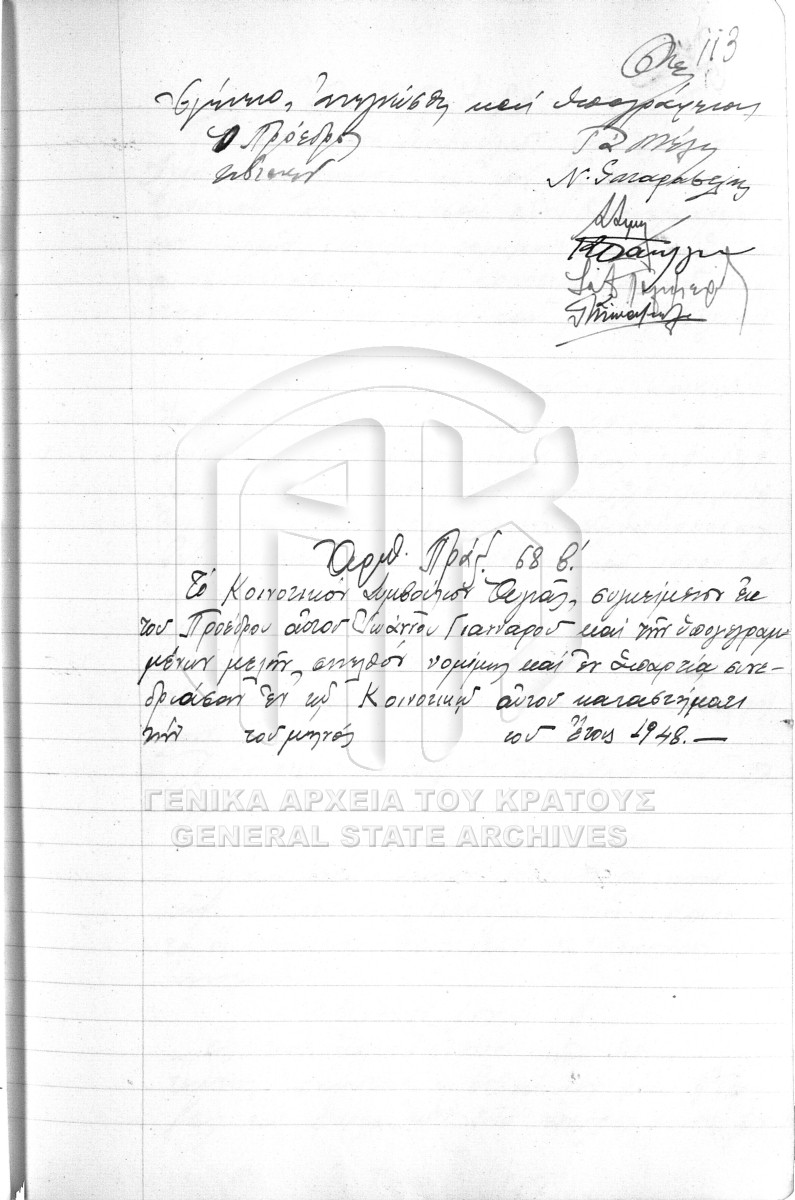 113
Ἐγένετο, ἀνεγνώσθη καὶ ὑπογράφεται
Ὁ Πρόεδρος Τὰ Μέλη
Ν.
Ἀριθ. Πράξ. 68 β!
Τό Κοινοτικόν Συμβούλιον Ἁγιᾶς, συγκείμενον ἐκ
τοῦ Προέδρου αὐτοῦ Ἰωάννου Γιανναροῦ καὶ τῶν ὑπογεγραμ
μένων μελῶν, συνελθόν νομίμως καὶ ἐν ἀπαρτίᾳ συνε-
δριάσαν ἐν τῷ Κοινοτικῷ αὐτοῦ καταστήματι
τὴν τοῦ μηνός τοῦ ἔτους 1948. —
ΓΕΝΙΚΑ ΑΡΧΕΙΑ ΤΟΥ ΚΡΑΤΟΥΣ
GENERAL STATE ARCHIVES